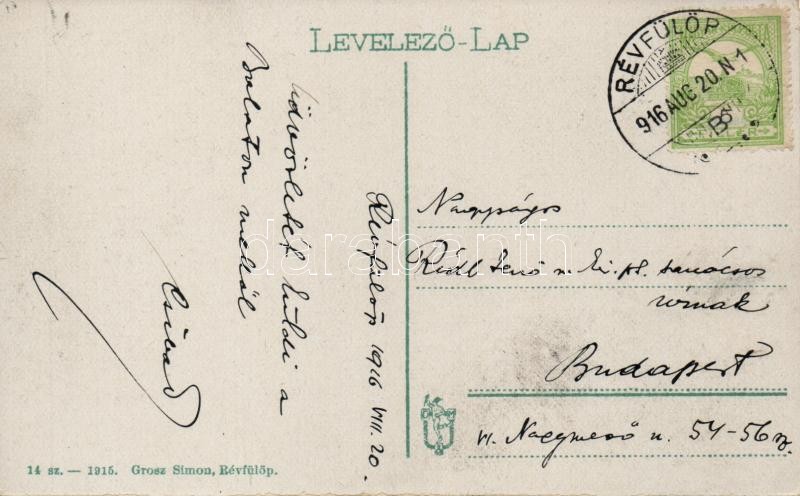 LEVELEZŐ-LAP
RÉVFÜLÖP
916 AUG 20. N 1
B
Révfülöp 1916 VIII. 20.
Üdvözletét küldi a
Balaton mellől
Nagyságos
Riedl Jenő m. kir. pü. tanácsos
úrnak
Budapest
VI. Nagymező u. 54-56 sz.
14 sz. — 1915. Grosz Simon, Révfülöp.
darabanth